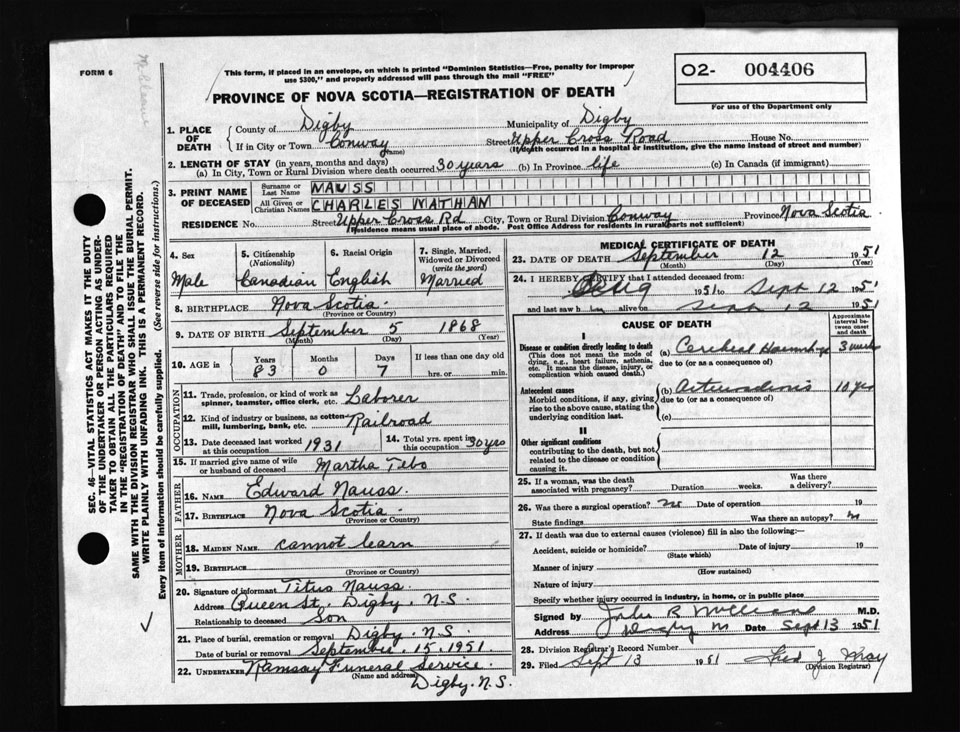 FORM 6
This form, if placed in an envelope, on which is printed "Dominion Statistics—Free, penalty for improper
use $300," and properly addressed will pass through the mail "FREE"
O2- 004406
For use of the Department only
PROVINCE OF NOVA SCOTIA—REGISTRATION OF DEATH
1. PLACE OF DEATH
County of Digby Municipality of Digby
If in City or Town Conway (Name) Street Upper Cross Road House No.
(If death occurred in a hospital or institution, give the name instead of street and number)
2. LENGTH OF STAY (in years, months and days)
(a) In City, Town or Rural Division where death occurred 30 years (b) In Province life (c) In Canada (if immigrant)
3. PRINT NAME OF DECEASED
Surname or Last Name NAUSS
All Given or Christian Names CHARLES NATHAN
RESIDENCE No. Street Upper Cross Rd City, Town or Rural Division Conway Province Nova Scotia
(Residence means usual place of abode. Post Office Address for residents in rural parts not sufficient)
4. Sex
Male
5. Citizenship (Nationality)
Canadian
6. Racial Origin
English
7. Single, Married, Widowed or Divorced (write the word)
Married
8. BIRTHPLACE Nova Scotia
(Province or Country)
9. DATE OF BIRTH September 5 1868
(Month) (Day) (Year)
10. AGE in Years 83 Months 0 Days 7 If less than one day old hrs. or min.
OCCUPATION
11. Trade, profession, or kind of work as spinner, teamster, office clerk, etc. Laborer
12. Kind of industry or business, as cotton mill, lumbering, bank, etc. Railroad
13. Date deceased last worked at this occupation 1931
14. Total yrs. spent in this occupation 30 yrs
15. If married give name of wife or husband of deceased Martha Tebo
FATHER
16. NAME Edward Nauss
17. BIRTHPLACE Nova Scotia
(Province or Country)
MOTHER
18. MAIDEN NAME cannot learn
19. BIRTHPLACE
(Province or Country)
20. Signature of informant Titus Nauss
Address Queen St. Digby. N.S.
Relationship to deceased Son
21. Place of burial, cremation or removal Digby. N.S.
Date of burial or removal September. 15. 1951.
22. UNDERTAKER Ramsay Funeral Service.
(Name and address) Digby. N.S.
MEDICAL CERTIFICATE OF DEATH
23. DATE OF DEATH September 12 1951
(Month) (Day) (Year)
24. I HEREBY CERTIFY that I attended deceased from:
Aug 1951 to Sept 12 1951
and last saw him alive on Sept 12 1951
CAUSE OF DEATH
Approximate interval between onset and death
I
Disease or condition directly leading to death (a) Cerebral Haemorrhage 3 weeks
(This does not mean the mode of dying, e.g., heart failure, asthenia, etc. It means the disease, injury, or complication which caused death.)
due to (or as a consequence of)
Antecedent causes (b) Arteriosclerosis 10 yrs
Morbid conditions, if any, giving rise to the above cause, stating the underlying condition last.
due to (or as a consequence of)
(c)
II
Other significant conditions contributing to the death, but not related to the disease or condition causing it.
25. If a woman, was the death associated with pregnancy? Duration weeks. Was there a delivery?
26. Was there a surgical operation? no Date of operation 19
State findings Was there an autopsy?
27. If death was due to external causes (violence) fill in also the following:—
Accident, suicide or homicide? Date of injury 19
(State which)
Manner of injury
(How sustained)
Nature of injury
Specify whether injury occurred in industry, in home, or in public place
Signed by M.D.
Address Digby Date Sept 13 1951
28. Division Registrar's Record Number
29. Filed Sept 13 1951 Fred J.
(Division Registrar)
SEC. 46—VITAL STATISTICS ACT MAKES IT THE DUTY
OF THE UNDERTAKER OR PERSON ACTING AS UNDER-
TAKER TO OBTAIN ALL THE PARTICULARS REQUIRED
IN THE "REGISTRATION OF DEATH" AND TO FILE THE
SAME WITH THE DIVISION REGISTRAR WHO SHALL ISSUE THE BURIAL PERMIT.
WRITE PLAINLY WITH UNFADING INK. THIS IS A PERMANENT RECORD.
Every item of information should be carefully supplied. (See reverse side for instructions.)